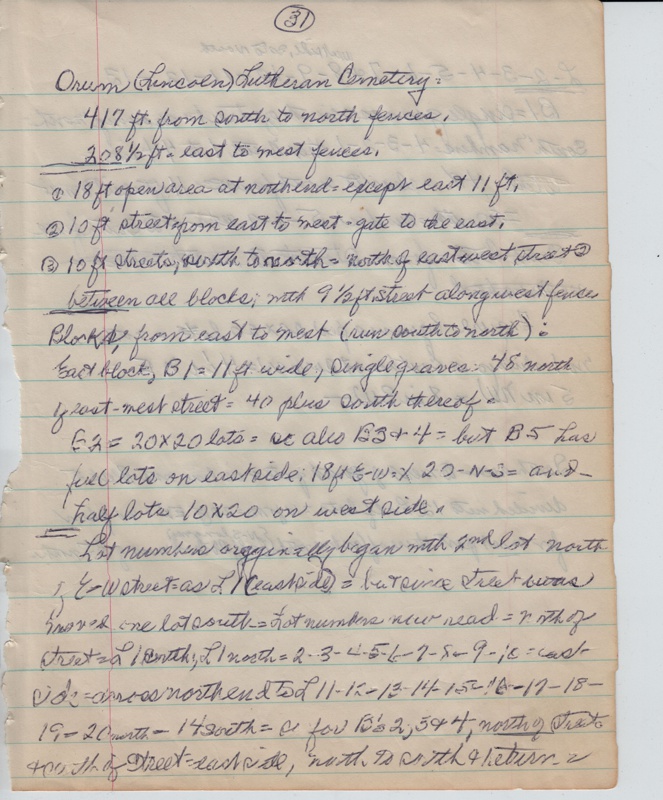 31
Orum (Lincoln) Lutheran Cemetery:
417 ft. from south to north fences.
208 1/2 ft. east to west fences.
① 18 ft open area at north end = except east 11 ft.
② 10 ft street from east to west - gate to the east.
③ 10 ft streets, south to north = north of east west street ②
between all blocks; with 9 1/2 ft street along west fence
Blocks, from east to west (run south to north):
East block, B1 = 11 ft wide, single graves: 48 north
of east-west street = 40 plus south thereof.
B2 = 20x20 lots = so also B3 & 4 = but B5 has
full lots on east side: 18 ft E-W x 20-N-S = and
half lots 10x20 on west side.
Lot numbers originally began with 2nd lot north
of E-W street = as L1 (east side) = but since street was
moved one lot south = Lot numbers now read = north of
street = L1 north = 2-3-4-5-6-7-8-9-10 = east
side = across north end to L11-12-13-14-15-16-17-18-
19-20 north - 1 = for B's 2, 3 & 4, north of street
south of street = east side, north to south & return =